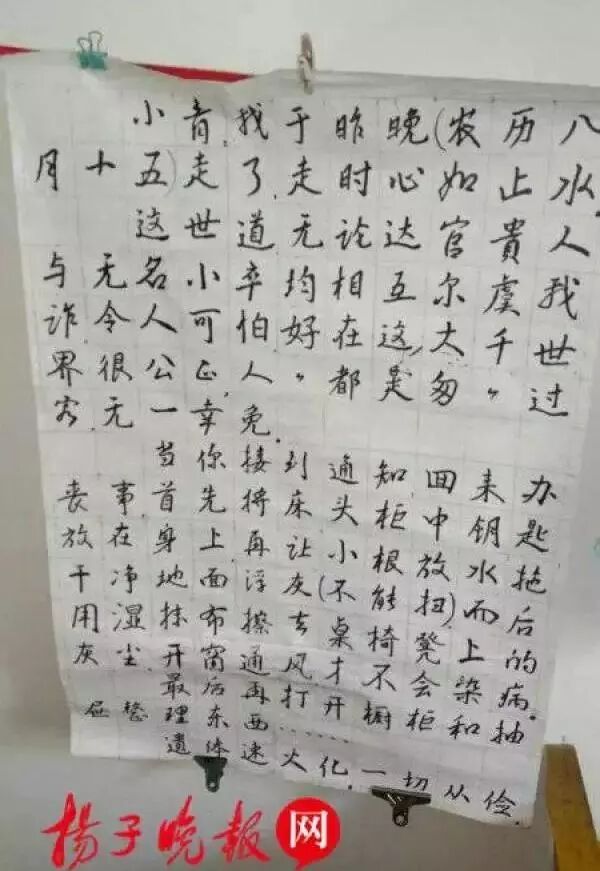 小青,我于昨晚(农历八
月十五)走了,走时心如止水.
这世道无论达官貴人
与无名小卒均相互尔虞我
诈,令人可怕.好在这大千世
界很公正,人〃都是匆〃过
客,无一幸免.
当你接到通知回来办
丧事,首先将床头柜中钥匙
放在身上,再让小根放水拖
干净地面浮灰(不能扭)而后
用湿抹布擦去桌椅凳上的
灰尘,开窗通风才不会染病.
最后再打开橱柜和抽
屉整理东西......
遗体速火化,一切从俭.
扬子晚报网